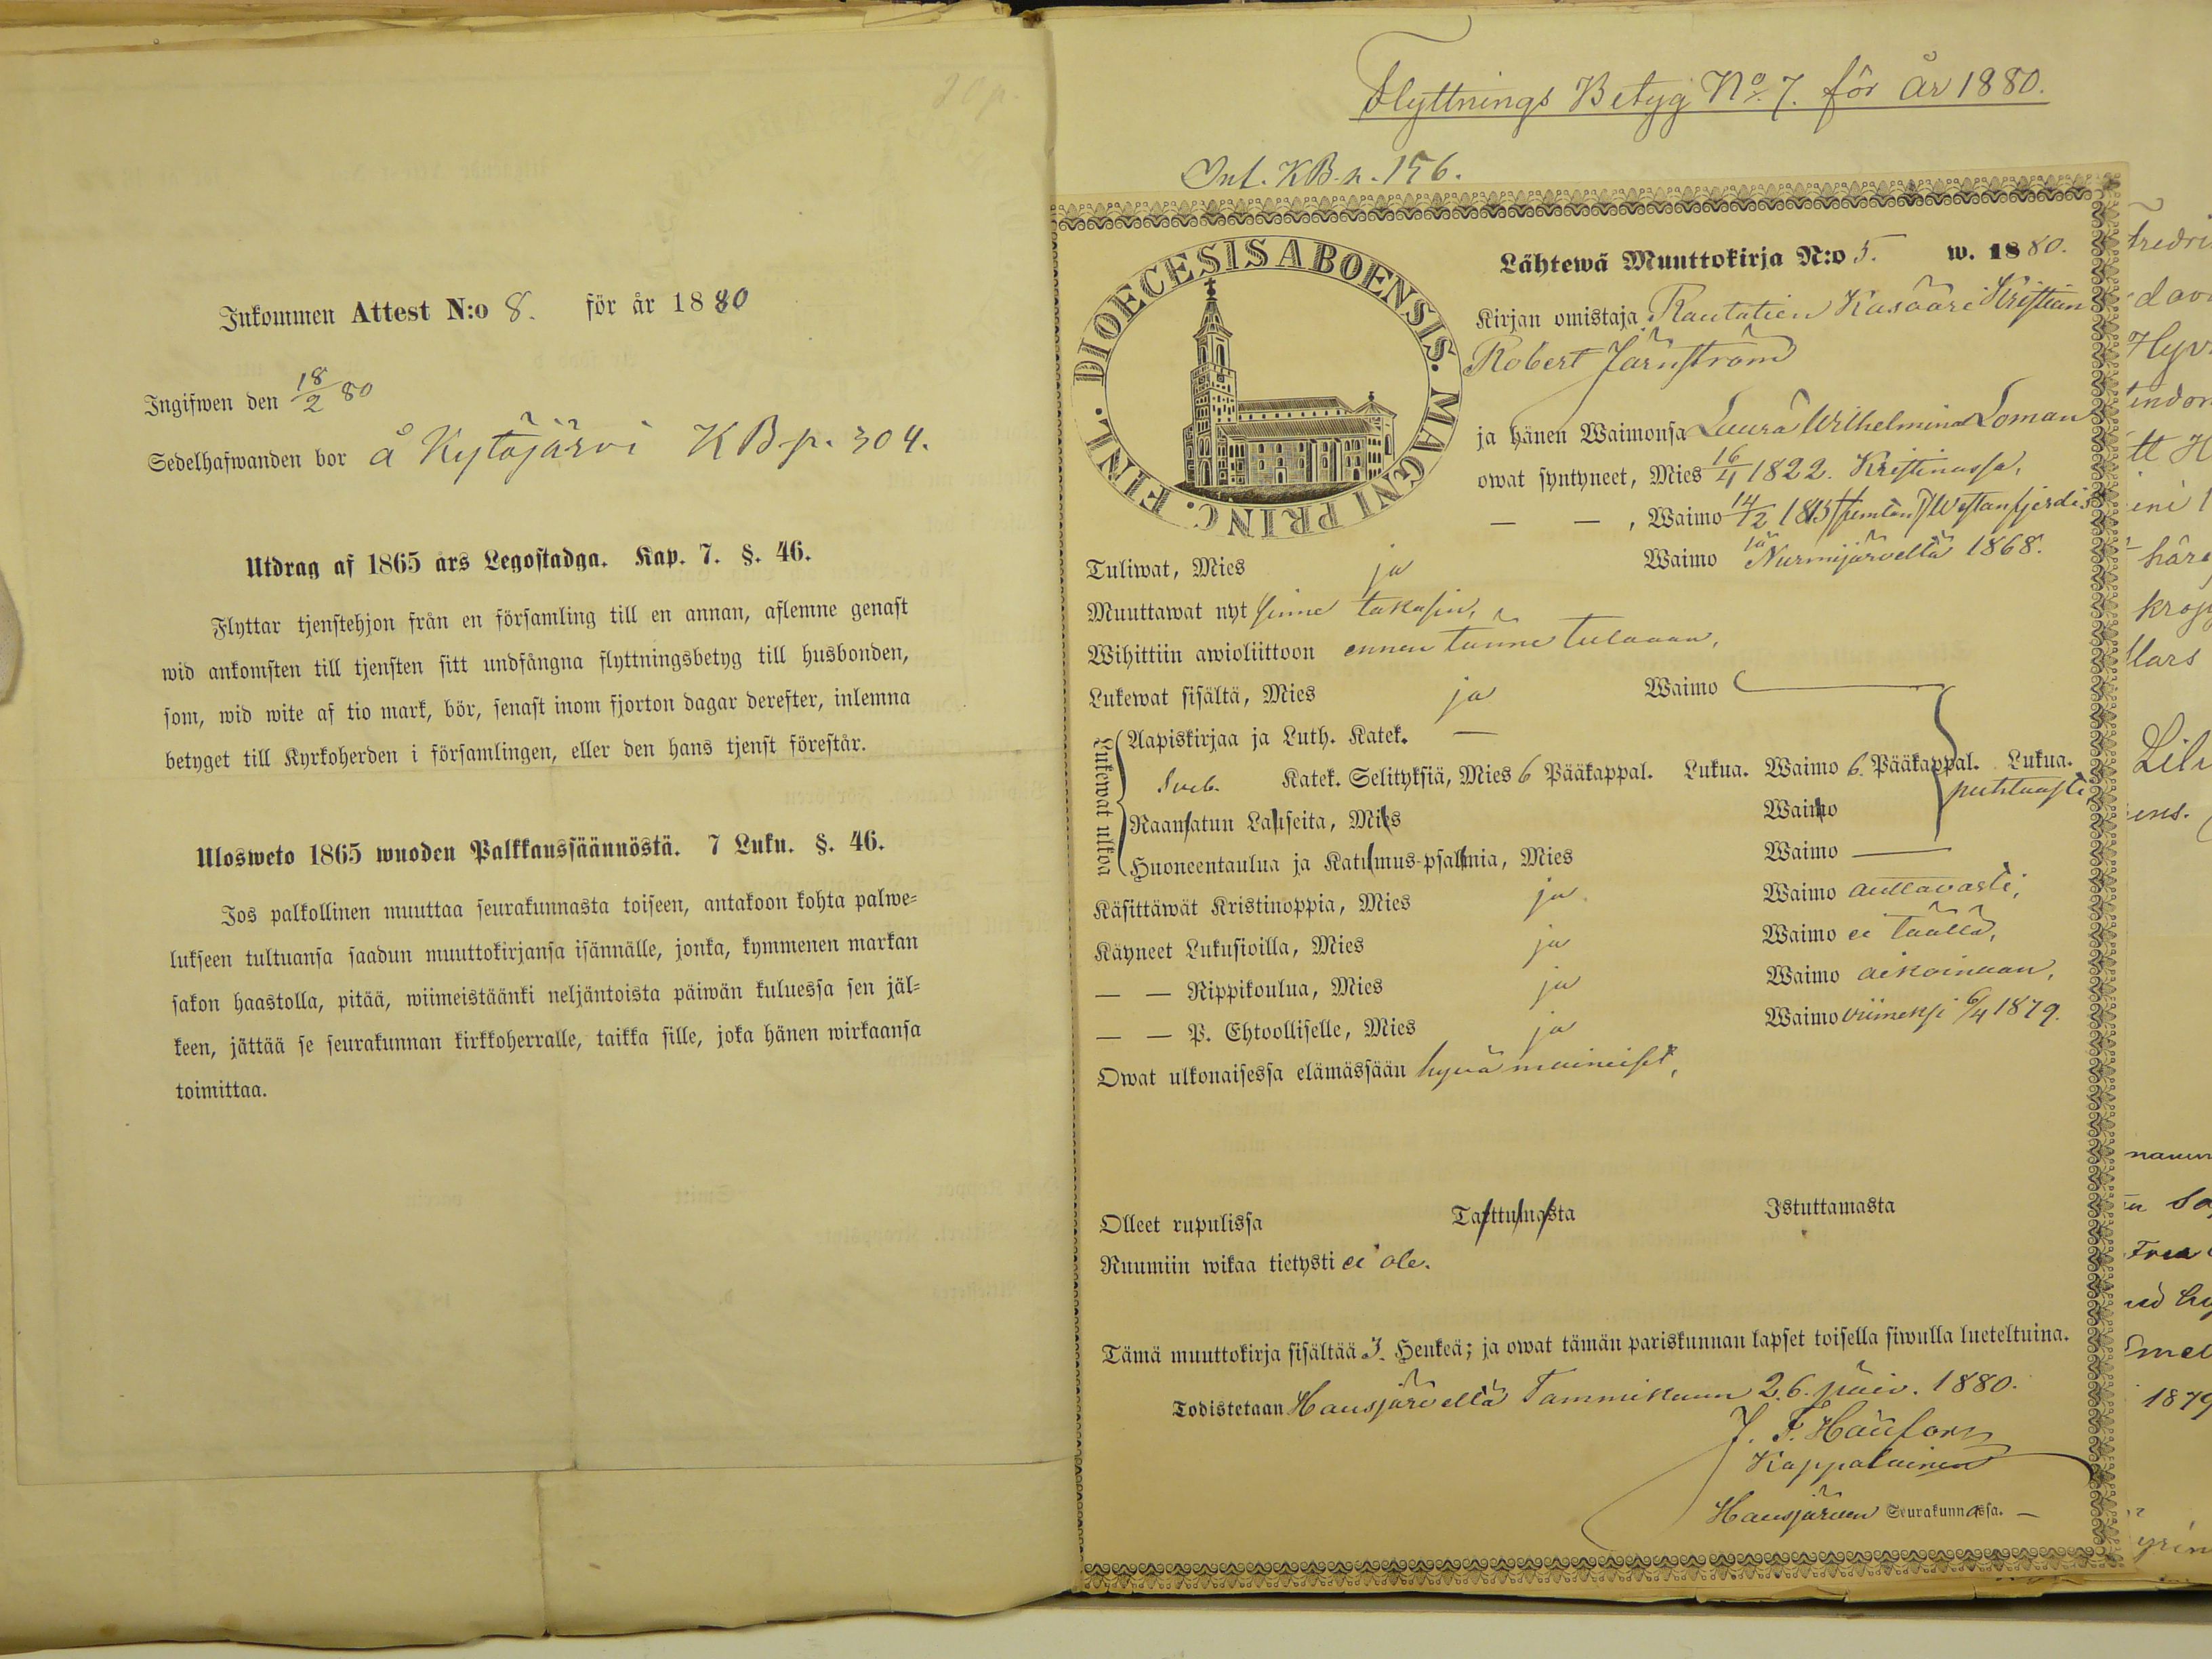 20 p.
Inkommen Attest N:o 8. för år 1880
Ingifwen den 18/2 80
Sedelhafwanden bor å Kytäjärvi KB p. 304.
Utdrag af 1865 års Legostadga. Kap. 7. §. 46.
Flyttar tjenstehjon från en församling till en annan, aflemne genast
wid ankomsten till tjensten sitt undfångna flyttningsbetyg till husbonden,
som, wid wite af tio mark, bör, senast inom fjorton dagar derefter, inlemna
betyget till Kyrkoherden i församlingen, eller den hans tjenst förestår.
Ulosweto 1865 wuoden Palkkaussäännöstä. 7 Luku. §. 46.
Jos palkollinen muuttaa seurakunnasta toiseen, antakoon kohta palwe-
lukseen tultuansa saadun muuttokirjansa isännälle, jonka, kymmenen markan
sakon haastolla, pitää, wiimeistäänki neljäntoista päiwän kuluessa sen jäl-
keen, jättää se seurakunnan kirkkoherralle, taikka sille, joka hänen wirkaansa
toimittaa.
Flyttnings Betyg No. 7. för år 1880.
Int. KB. n. 156.
DIOECESIS ABOENSIS. MAGNI PRINC. FINL.
Lähtewä Muuttokirja N:o 5. w. 1880.
Kirjan omistaja Rautatien Kasööri Kristian
Robert Järnström
ja hänen Waimonsa Laura Wilhelmina Loman
owat syntyneet, Mies 16/4 1822. Kristinassa,
— — , Waimo 14/2 1815 (femton) Westanfjerdis
Tuliwat, Mies ja Waimo Nurmijärveltä 1868.
Muuttawat nyt sinne takasin,
Wihittiin awioliittoon ennen tänne tuloaan,
Lukewat sisältä, Mies ja Waimo
Lukewat ulkoa
Aapiskirjaa ja Luth. Katek. —
Sveb. Katek. Selityksiä, Mies 6 Pääkappal. Lukua. Waimo 6. Pääkappal. Lukua.
puhtaasti
Raamatun Lauseita, Mies Waimo
Huoneentaulua ja Katumus-psalmia, Mies Waimo —
Käsittäwät Kristinoppia, Mies ja Waimo auttavasti,
Käyneet Lukusioilla, Mies ja Waimo ei täällä,
— — Rippikoulua, Mies ja Waimo aikoinaan,
— — P. Ehtoolliselle, Mies ja Waimo viimeksi 6/4 1879.
Owat ulkonaisessa elämässään hyvä maineiset,
Olleet rupulissa Tarttumasta Istuttamasta
Ruumiin wikaa tietysti ei ole.
Tämä muuttokirja sisältää 3. Henkeä; ja owat tämän pariskunnan lapset toisella siwulla lueteltuina.
Todistetaan Hausjärvellä Tammikuun 26. päiv. 1880.
Kappalainen
Hausjärven Seurakunnassa. —